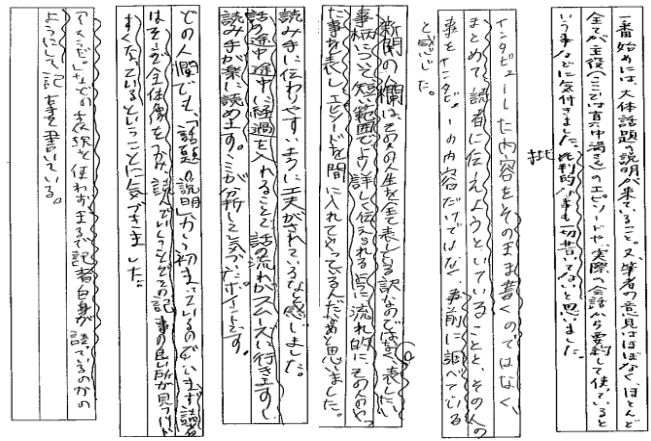 一番始めには、大体話題の説明が来ていること。又、筆者の意見はほぼなく、ほとんど
全てが主役（ここでは真中満さん）のエピソードや、実際の会話から要約して使っていると
いう事などに気付きました。批判的な事も一切書いてないと思いました。
批
インタビューした内容をそのまま書くのではなく、
まとめて、読者に伝えようとしていることと、その人の
事をインタビューの内容だけではなく、事前に調べている
と感じた。
新聞の人欄はその人の人生を全て表している訳なのではなく、表したい
事柄について短い範囲でより詳しく伝えられる様に流れ的にその人のやっ
た事を表し、エピソードを間に入れてやっているんだなあと思いました。
読み手に伝わりやすいように工夫がされているなと感じました。
話の途中途中に経過を入れることで話の流れがスムーズに行きますし、
読み手が楽に読めます。ここが分析して気づいたポイントです。
どの人欄でも、「話題の説明」から初まっているので、いまず読者
はそこで全体像をつかみ、読んでいくうちにその記事の良い所が見つけ
やすくなっているということに気づきました。
「〜らしい」などの表現を使わずまるで記者自身が話ているのかの
ようにして記事を書いている。